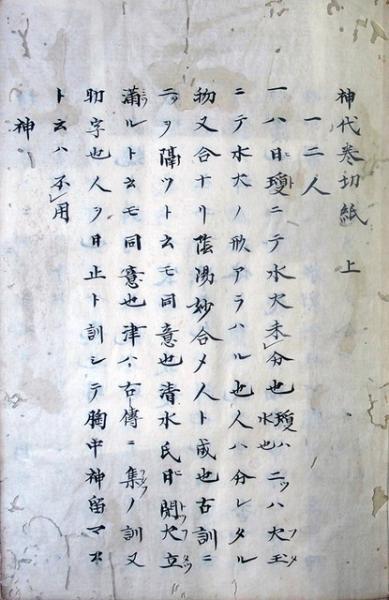 神代巻切紙 上
一二人
一ハ日瓊ニテ水火未分也瓊ハ水也二ツハ火玉
ニテ水火ノ形アラハル也人ハ分レタル
物又合ナリ陰陽妙合〆人ト成也古訓ニ
二ツヲ隔ツト云モ同意也清水氏曰開火立
満ルト云モ同意也津ハ古傳ニ集ノ訓又
助字也人ヲ日止ト訓シテ胸中神留マス
ト云ハ不用
神